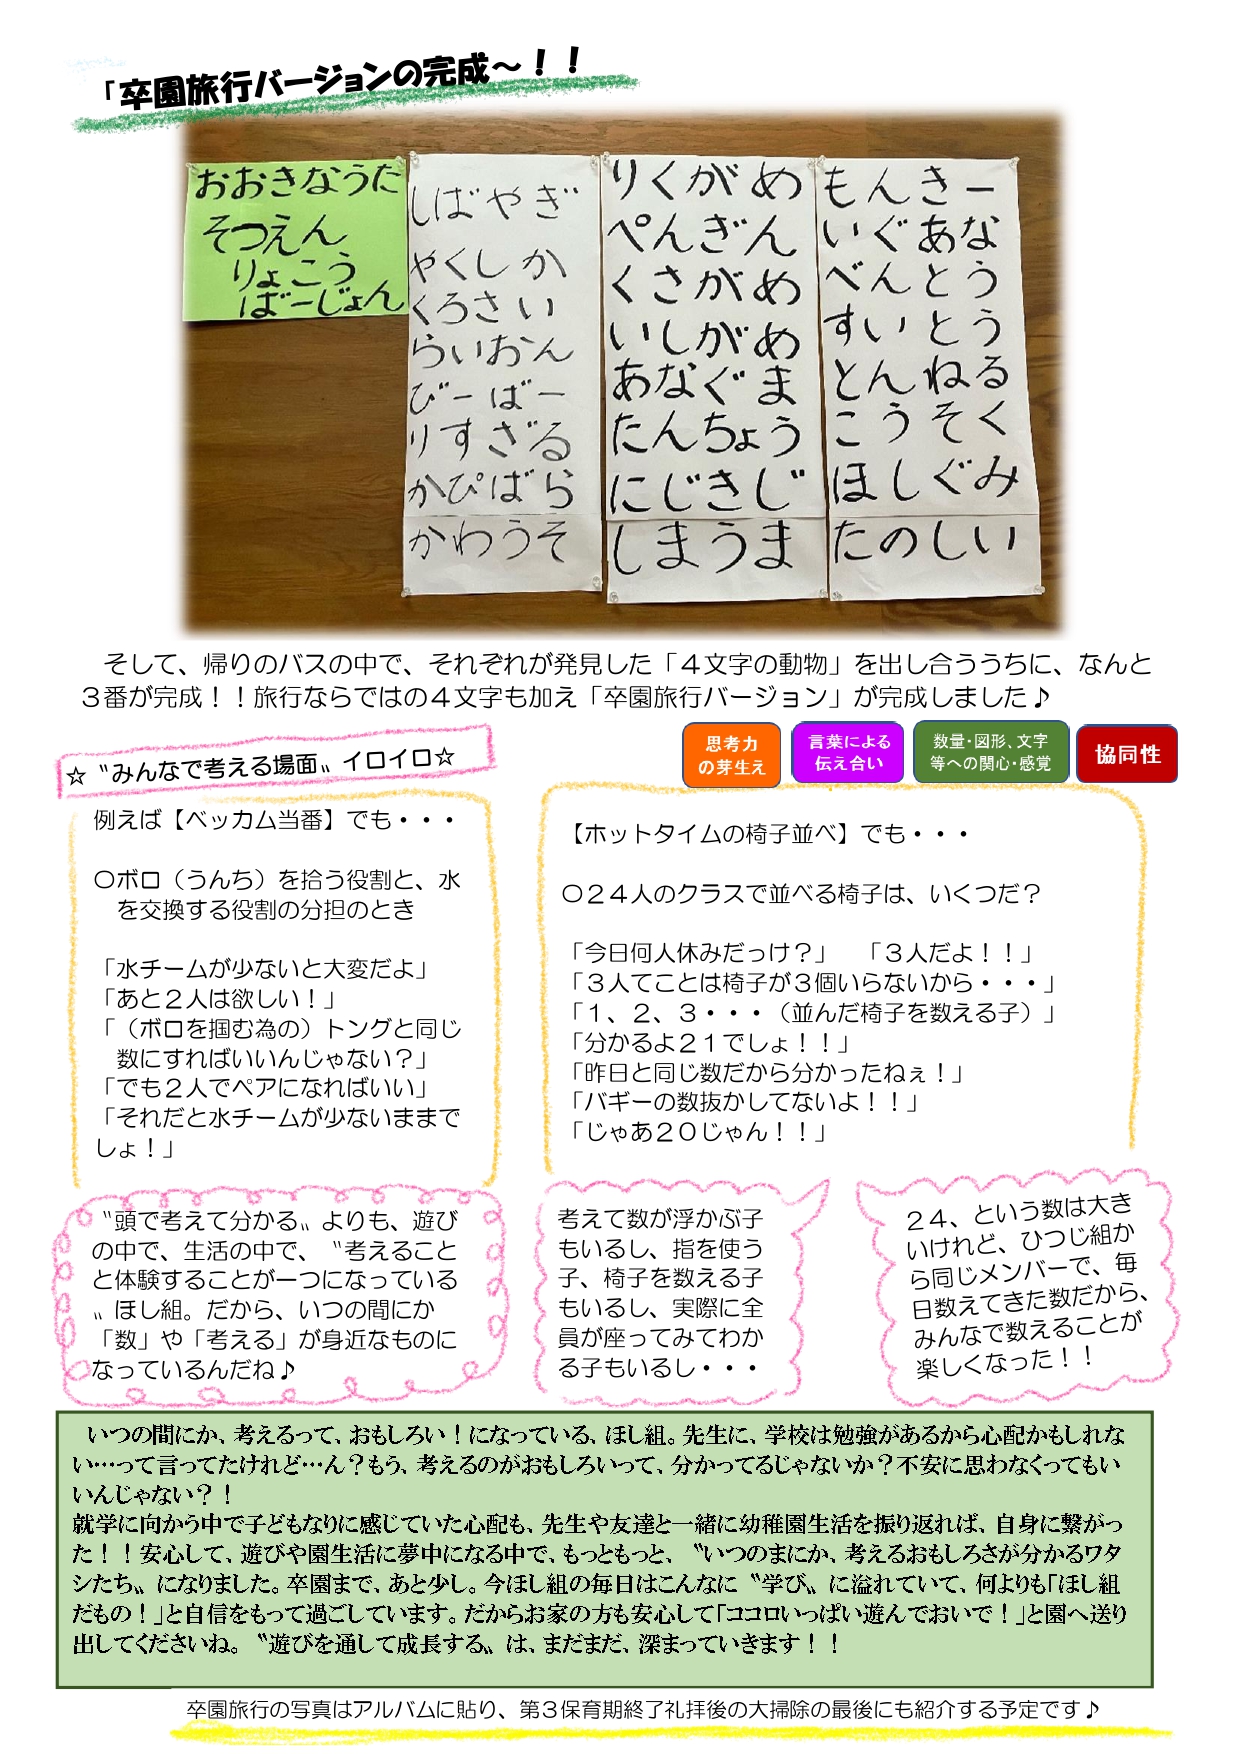 「卒園旅行バージョンの完成～！！
おおきなうた
そつえん
りょこう
ばーじょん
しばやぎ
やくしか
くろさい
らいおん
びーばー
りすざる
かぴばら
かわうそ
りくがめ
ぺんぎん
くさがめ
いしがめ
あなぐま
たんちょう
にじきじ
しまうま
もんきー
いぐあな
べんとう
すいとう
とんねる
こうそく
ほしぐみ
たのしい
そして、帰りのバスの中で、それぞれが発見した「４文字の動物」を出し合ううちに、なんと
３番が完成！！旅行ならではの４文字も加え「卒園旅行バージョン」が完成しました♪
思考力
の芽生え
言葉による
伝え合い
数量・図形、文字
等への関心・感覚
協同性
☆〝みんなで考える場面〟イロイロ☆
例えば【ベッカム当番】でも・・・
〇ボロ（うんち）を拾う役割と、水
を交換する役割の分担のとき
「水チームが少ないと大変だよ」
「あと２人は欲しい！」
「（ボロを掴む為の）トングと同じ
数にすればいいんじゃない？」
「でも２人でペアになればいい」
「それだと水チームが少ないままで
しょ！」
【ホットタイムの椅子並べ】でも・・・
〇２４人のクラスで並べる椅子は、いくつだ？
「今日何人休みだっけ？」　「３人だよ！！」
「３人てことは椅子が３個いらないから・・・」
「１、２、３・・・（並んだ椅子を数える子）」
「分かるよ２１でしょ！！」
「昨日と同じ数だから分かったねぇ！」
「バギーの数抜かしてないよ！！」
「じゃあ２０じゃん！！」
〝頭で考えて分かる〟よりも、遊び
の中で、生活の中で、〝考えること
と体験することが一つになっている
〟ほし組。だから、いつの間にか
「数」や「考える」が身近なものに
なっているんだね♪
考えて数が浮かぶ子
もいるし、指を使う
子、椅子を数える子
もいるし、実際に全
員が座ってみてわか
る子もいるし・・・
２４、という数は大き
いけれど、ひつじ組か
ら同じメンバーで、毎
日数えてきた数だから、
みんなで数えることが
楽しくなった！！
いつの間にか、考えるって、おもしろい！になっている、ほし組。先生に、学校は勉強があるから心配かもしれな
い…って言ってたけれど…ん？もう、考えるのがおもしろいって、分かってるじゃないか？不安に思わなくってもい
いんじゃない？！
就学に向かう中で子どもなりに感じていた心配も、先生や友達と一緒に幼稚園生活を振り返れば、自身に繋がっ
た！！安心して、遊びや園生活に夢中になる中で、もっともっと、〝いつのまにか、考えるおもしろさが分かるワタ
シたち〟になりました。卒園まで、あと少し。今ほし組の毎日はこんなに〝学び〟に溢れていて、何よりも「ほし組
だもの！」と自信をもって過ごしています。だからお家の方も安心して「ココロいっぱい遊んでおいで！」と園へ送り
出してくださいね。〝遊びを通して成長する〟は、まだまだ、深まっていきます！！
卒園旅行の写真はアルバムに貼り、第３保育期終了礼拝後の大掃除の最後にも紹介する予定です♪